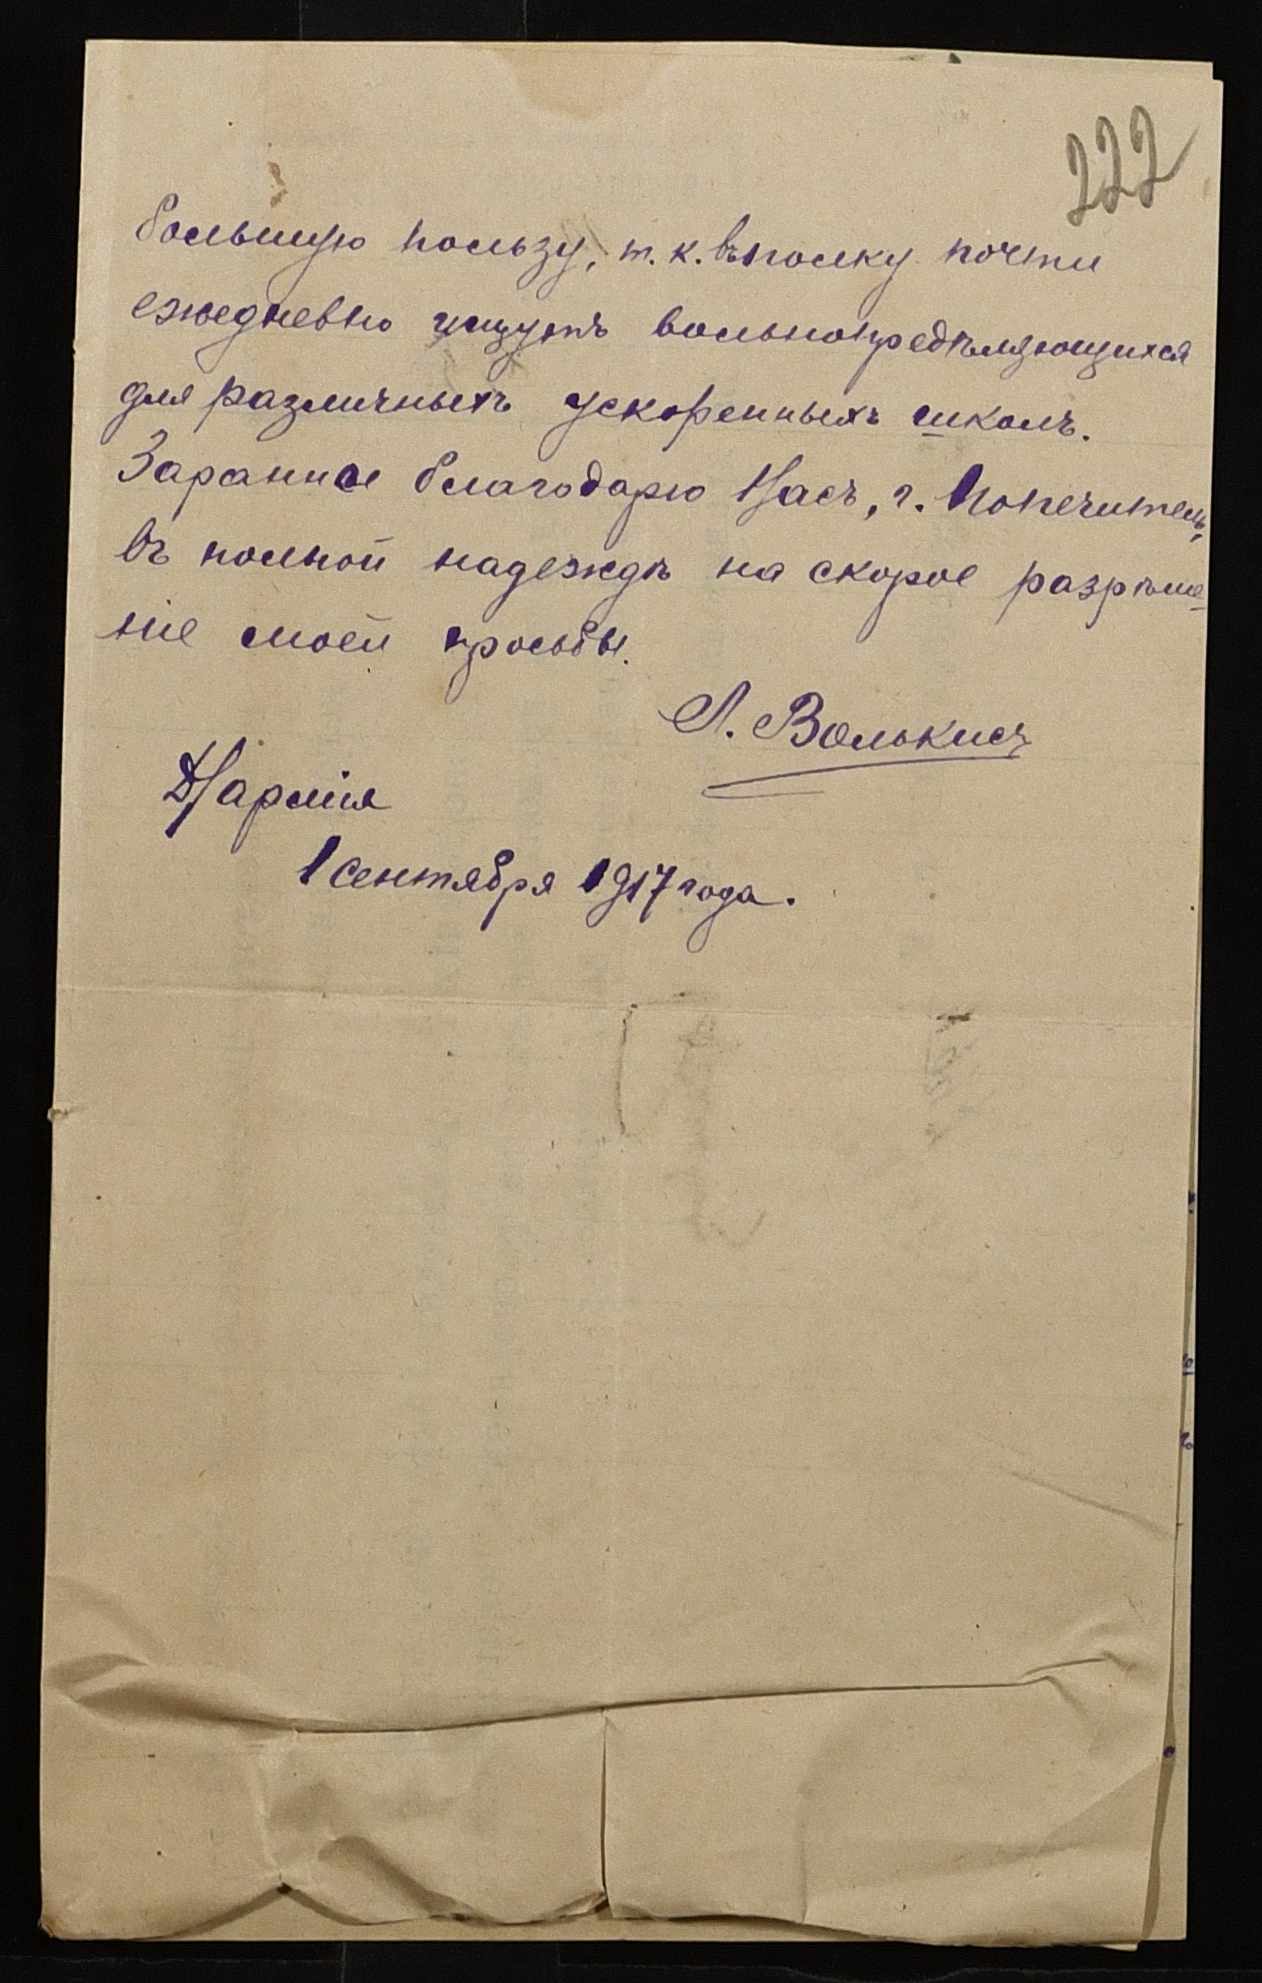 222
большую пользу, т. к. въ полку почти
ежедневно ищутъ вольноопредѣляющихся
для различныхъ ускоренныхъ школъ.
Заранѣе благодарю Васъ, г. Попечитель,
въ полной надеждѣ на скорое разрѣше-
ніе моей просьбы.
Л. Волькисъ
1 сентября 1917 года.